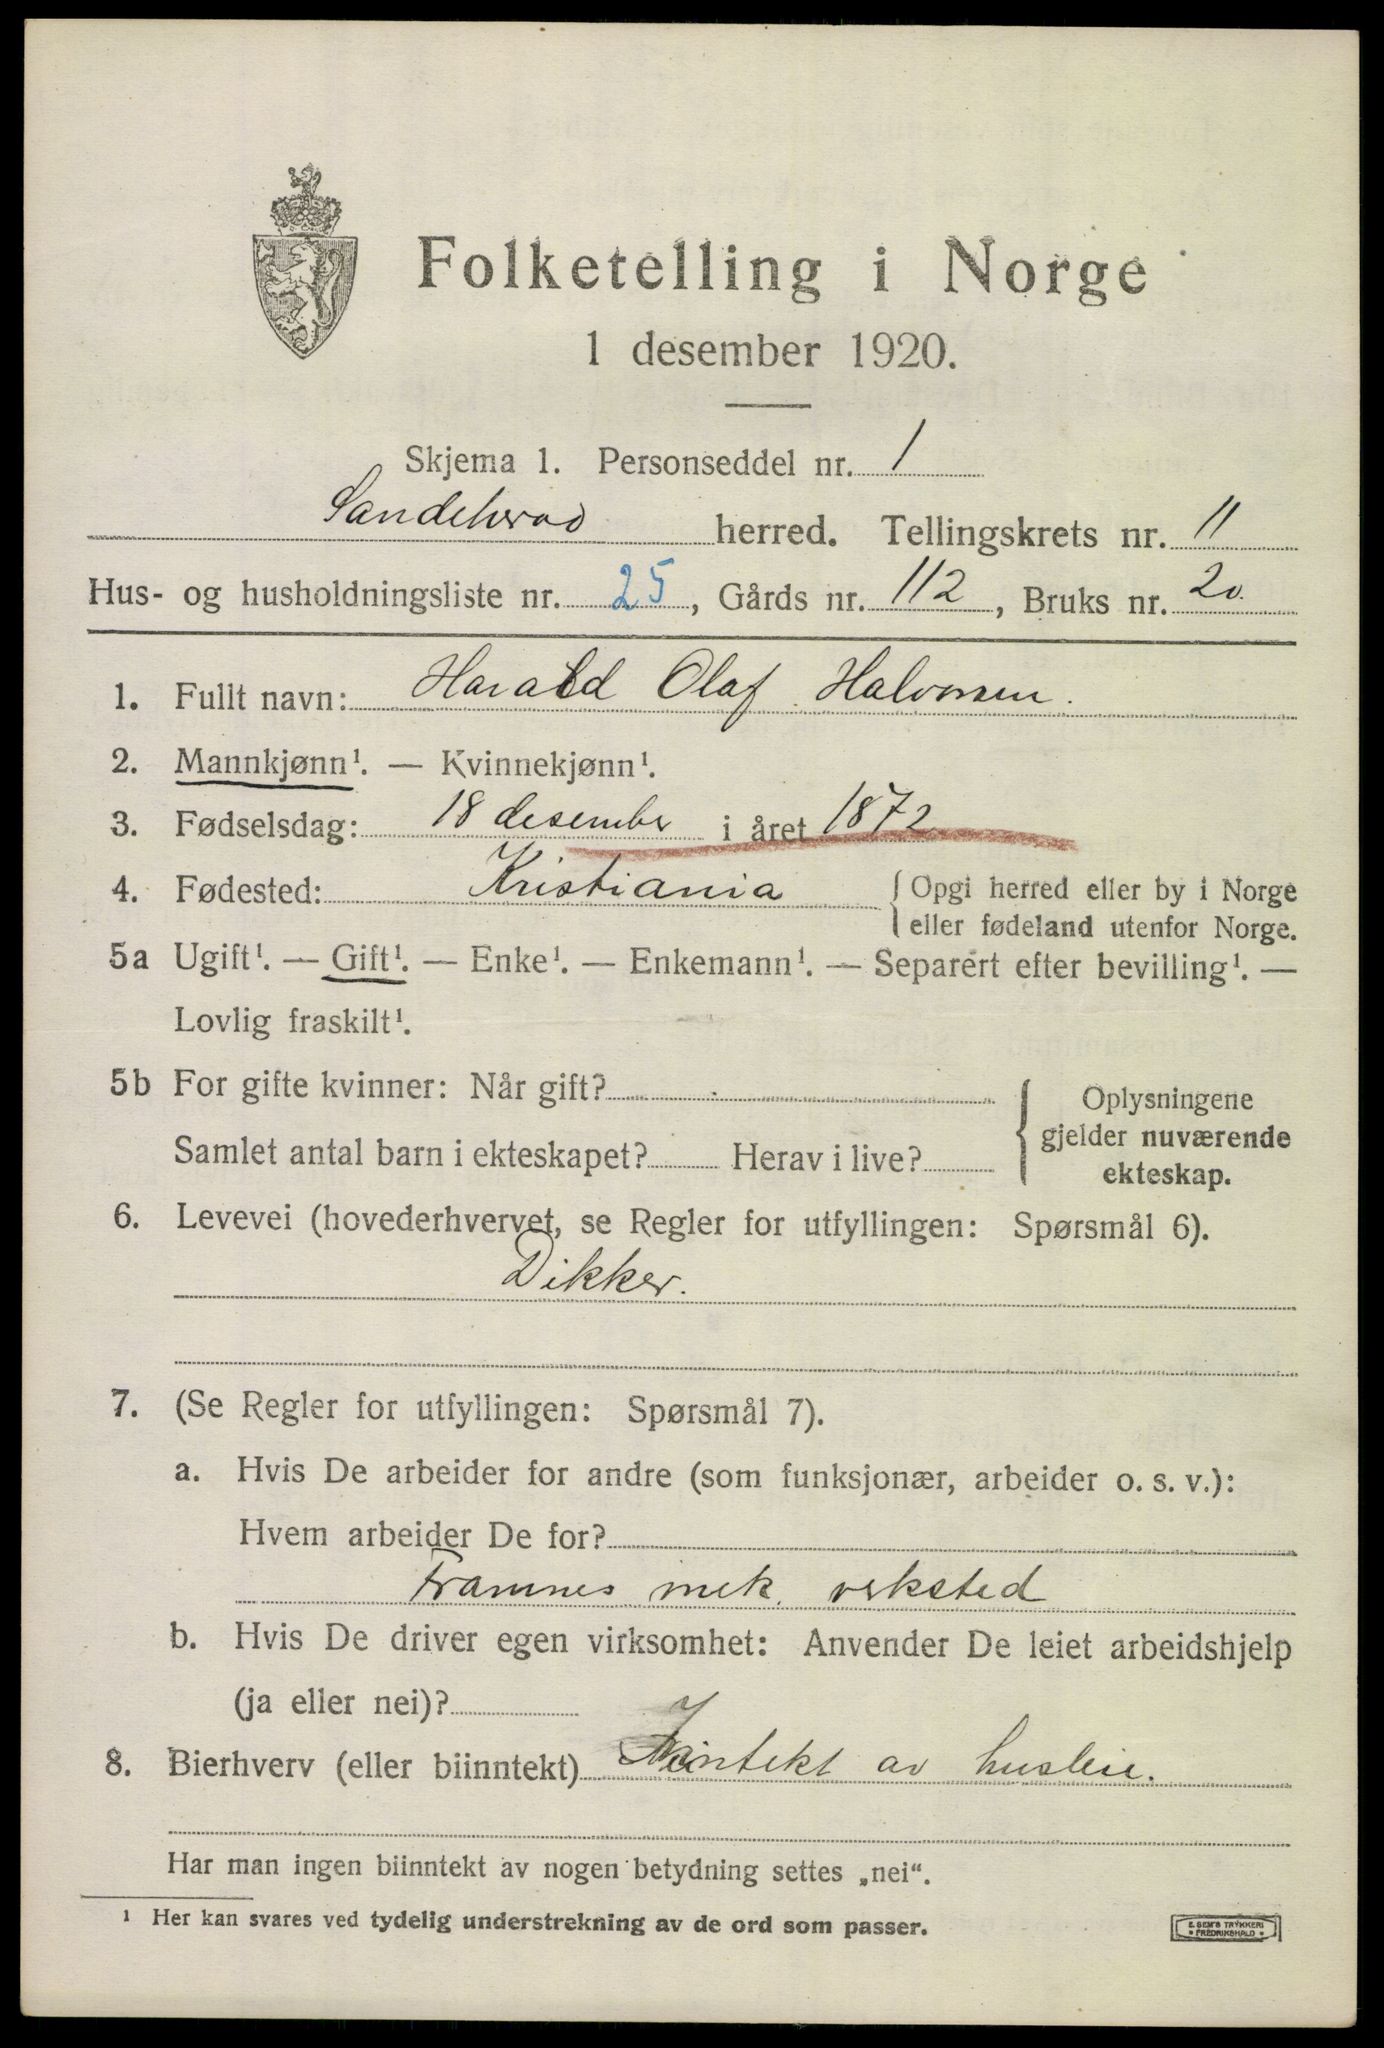 Folketelling i Norge
1 desember 1920.
Skjema 1. Personseddel nr. 1
Sandeherad herred. Tellingskrets nr. 11
Hus- og husholdningsliste nr. 25, Gårds nr. 112, Bruks nr. 20
1. Fullt navn: Harald Olaf Halvorsen.
2. Mannkjønn¹. — Kvinnekjønn¹.
3. Fødselsdag: 18 desember i året 1872
4. Fødested: Kristiania { Opgi herred eller by i Norge
eller fødeland utenfor Norge.
5a Ugift¹. — Gift¹. — Enke¹. — Enkemann¹. — Separert efter bevilling¹. —
Lovlig fraskilt¹.
5b For gifte kvinner: Når gift?
Samlet antal barn i ekteskapet? Herav i live?
Oplysningene
gjelder nuværende
ekteskap.
6. Levevei (hovederhvervet, se Regler for utfyllingen: Spørsmål 6).
Dikker.
7. (Se Regler for utfyllingen: Spørsmål 7).
a. Hvis De arbeider for andre (som funksjonær, arbeider o. s. v.):
Hvem arbeider De for?
Framnes mek. verksted
b. Hvis De driver egen virksomhet: Anvender De leiet arbeidshjelp
(ja eller nei)?
8. Bierhverv (eller biinntekt) Inntekt av husleie.
Har man ingen biinntekt av nogen betydning settes „nei“.
¹ Her kan svares ved tydelig understrekning av de ord som passer.
E. SEM'S TRYKKERI
* FREDRIKSHALD *